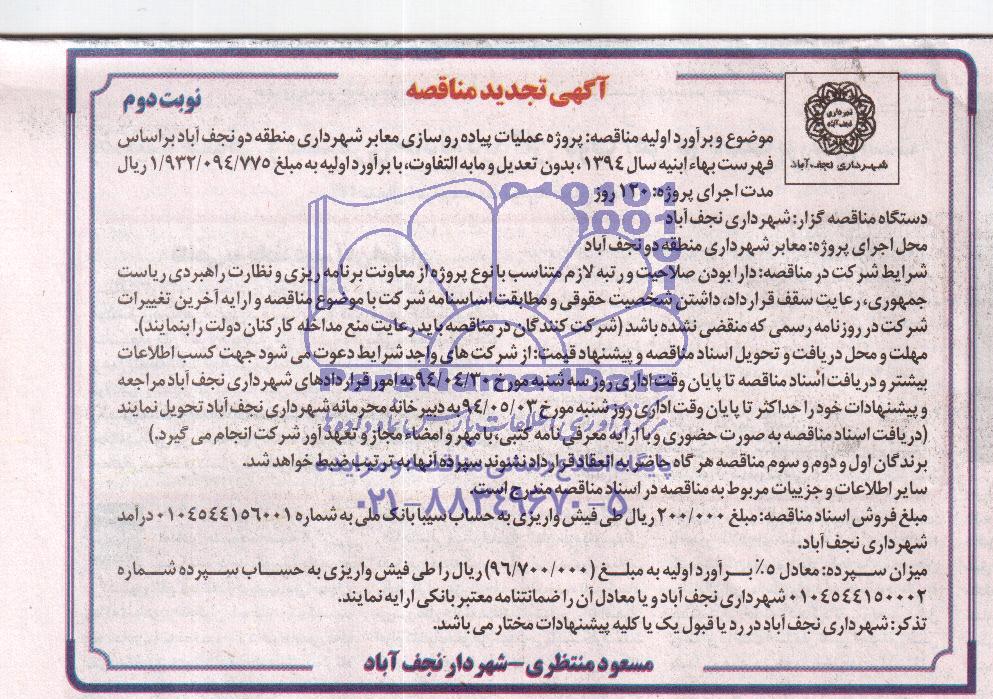 آگهی تجدید مناقصه
نوبت دوم
شهرداری نجف آباد
شهرداری نجف آباد
موضوع و برآورد اولیه مناقصه: پروژه عملیات پیاده رو سازی معابر شهرداری منطقه دو نجف آباد براساس
فهرست بهاء ابنیه سال ۱۳۹۴، بدون تعدیل و مابه التفاوت، با برآورد اولیه به مبلغ ۱/۹۳۲/۰۹۴/۷۷۵ ریال
مدت اجرای پروژه: ۱۲۰ روز
دستگاه مناقصه گزار: شهرداری نجف آباد
محل اجرای پروژه: معابر شهرداری منطقه دو نجف آباد
شرایط شرکت در مناقصه: دارا بودن صلاحیت و رتبه لازم متناسب با نوع پروژه از معاونت برنامه ریزی و نظارت راهبردی ریاست
جمهوری، رعایت سقف قرارداد، داشتن شخصیت حقوقی و مطابقت اساسنامه شرکت با موضوع مناقصه و ارایه آخرین تغییرات
شرکت در روزنامه رسمی که منقضی نشده باشد (شرکت کنندگان در مناقصه باید رعایت منع مداخله کارکنان دولت را بنمایند).
مهلت و محل دریافت و تحویل اسناد مناقصه و پیشنهاد قیمت: از شرکت های واجد شرایط دعوت می شود جهت کسب اطلاعات
بیشتر و دریافت اسناد مناقصه تا پایان وقت اداری روز سه شنبه مورخ ۹۴/۰۴/۳۰ به امور قراردادهای شهرداری نجف آباد مراجعه
و پیشنهادات خود را حداکثر تا پایان وقت اداری روز شنبه مورخ ۹۴/۰۵/۰۳ به دبیرخانه محرمانه شهرداری نجف آباد تحویل نمایند
(دریافت اسناد مناقصه به صورت حضوری و با ارایه معرفی نامه کتبی، با مهر و امضاء مجاز و تعهد آور شرکت انجام می گیرد.)
برندگان اول و دوم و سوم مناقصه هر گاه حاضر به انعقاد قرارداد نشوند سپرده آنها به ترتیب ضبط خواهد شد.
سایر اطلاعات و جزییات مربوط به مناقصه در اسناد مناقصه مندرج است.
۰۲۱-۸۸۳۴۹۶۷۰-۵
مبلغ فروش اسناد مناقصه: مبلغ ۲۰۰/۰۰۰ ریال طی فیش واریزی به حساب سیبا بانک ملی به شماره ۰۱۰۴۵۴۴۱۵۶۰۰۱ درآمد
شهرداری نجف آباد.
میزان سپرده: معادل ۵٪ برآورد اولیه به مبلغ (۹۶/۷۰۰/۰۰۰) ریال را طی فیش واریزی به حساب سپرده شماره
۰۱۰۴۵۴۴۱۵۰۰۰۲ شهرداری نجف آباد و یا معادل آن را ضمانتنامه معتبر بانکی ارایه نمایند.
تذکر: شهرداری نجف آباد در رد یا قبول یک یا کلیه پیشنهادات مختار می باشد.
مسعود منتظری-شهردار نجف آباد